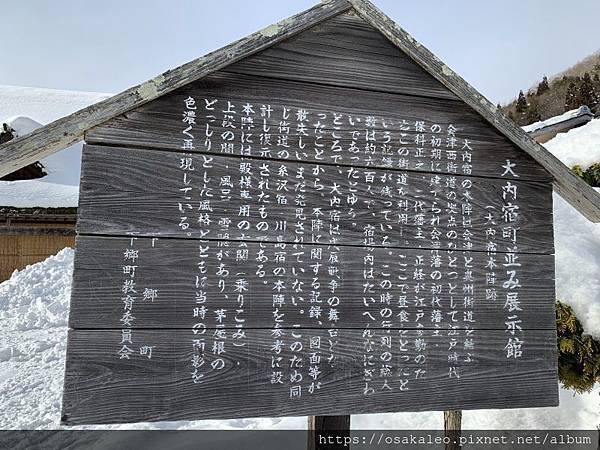 大内宿町並み展示館
（大内宿本陣跡）
大内宿の本陣は会津と奥州街道を結ぶ
会津西街道の要点のひとつとして江戸時代
の初期に建てられ会津藩の初代藩主・
保科正之、二代藩主・正経が江戸参勤のた
めこの街道を利用し、ここで昼食をとったと
いう記録が残っている。この時の行列の總人
数は約六百人で、宿場内はたいへんなにぎわ
いであったとゆう。
ところで、大内宿は戊辰戦争の舞台とな
ったことから、本陣に関する記録、図面等が
散失しいまだ発見されていない。このため同
じ街道の糸沢宿、川島宿の本陣を参考に設
計し復元されたものである。
本陣には殿様専用の玄関（乗りこみ）、
上段の間、風呂、雪隠があり、茅屋根の
どっしりとした風格とともに当時の面影を
色濃く再現している。
下郷町
下郷町教育委員会
https://osakaleo.pixnet.net/album